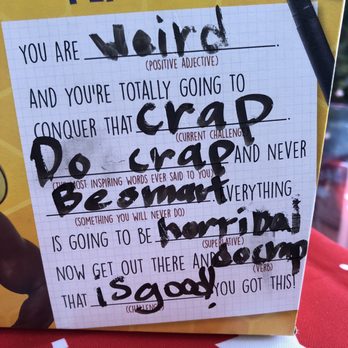 YOU ARE weird.
(POSITIVE ADJECTIVE)
AND YOU'RE TOTALLY GOING TO
CONQUER THAT crap.
(CURRENT CHALLENGE)
Do crap AND NEVER
MOST INSPIRING WORDS EVER SAID TO YOU)
Be smart EVERYTHING
(SOMETHING YOU WILL NEVER DO)
IS GOING TO BE horribal
(SUPERLATIVE)
NOW GET OUT THERE AND do crap
(VERB)
THAT is good! YOU GOT THIS!
(CHALLENGE)